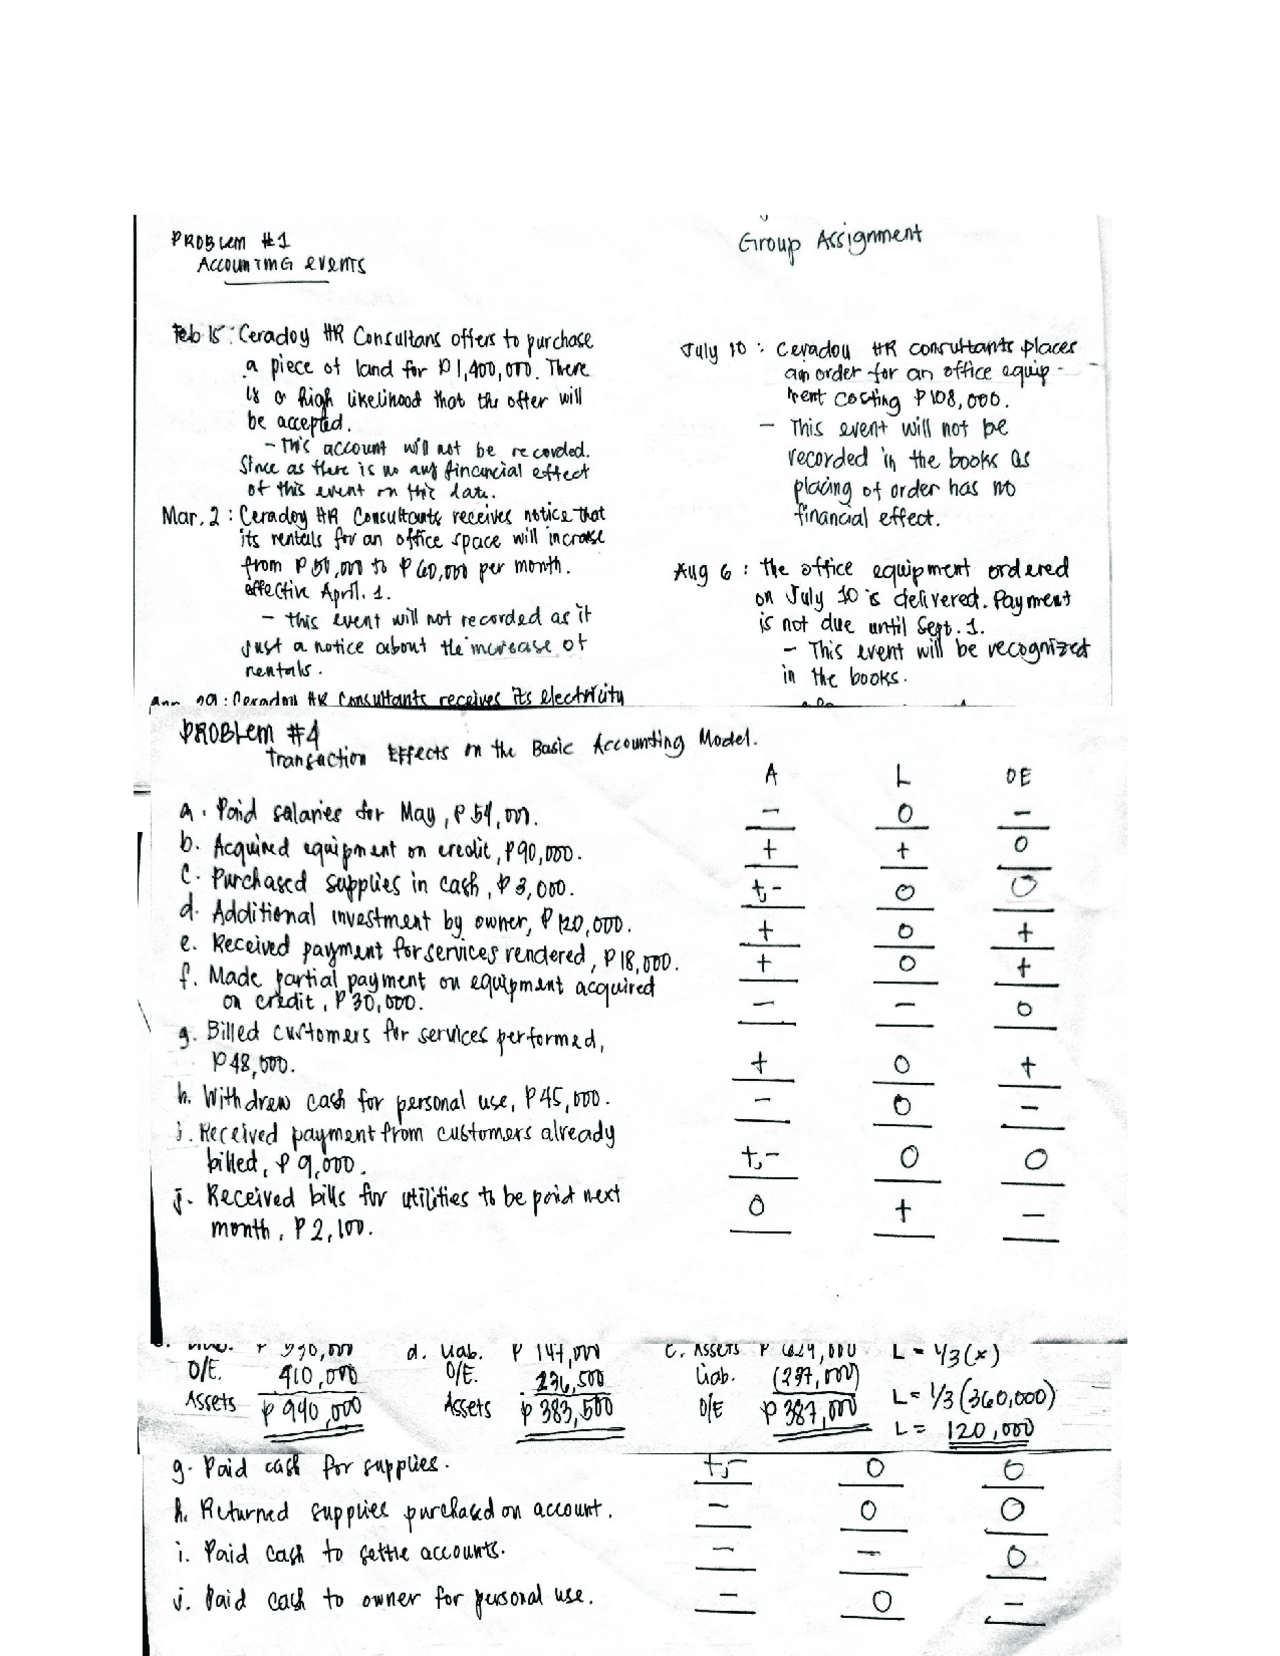 PROBLEM #1
ACCOUNTING EVENTS
Group Assignment
Feb 15: Ceradoy HR Consultans offers to purchase
a piece of land for ₱1,400,000. There
is a high likelihood that the offer will
be accepted.
- This account will not be recorded.
Since as there is no any financial effect
of this event on this date.
Mar. 2: Ceradoy HR Consultants receives notice that
its rentals for an office space will increase
from ₱50,000 to ₱60,000 per month.
effective April. 1.
- this event will not recorded as it
Just a notice about the increase of
rentals.
Apr. 29: Ceradoy HR Consultants receives its electricity
July 10: Ceradoy HR consultants places
an order for an office equip-
ment costing ₱108,000.
- This event will not be
recorded in the books as
placing of order has no
financial effect.
Aug 6: the office equipment ordered
on July 10 is delivered. Payment
is not due until Sept. 1.
- This event will be recognized
in the books.
PROBLEM #4
Transaction Effects on the Basic Accounting Model.
A L OE
a. Paid salaries for May, ₱54,000. - 0 -
b. Acquired equipment on credit, ₱90,000. + + 0
c. Purchased supplies in cash, ₱3,000. +,- 0 0
d. Additional investment by owner, ₱120,000. + 0 +
e. Received payment for services rendered, ₱18,000. + 0 +
f. Made partial payment on equipment acquired
on credit, ₱30,000. - - 0
g. Billed customers for services performed,
₱48,000. + 0 +
h. Withdrew cash for personal use, ₱45,000. - 0 -
i. Received payment from customers already
billed, ₱9,000. +,- 0 0
j. Received bills for utilities to be paid next
month, ₱2,100. 0 + -
d. Liab. ₱ 147,000 C. Assets L = 1/3(x)
O/E. 410,000 O/E. 236,500 Liab.
Assets ₱ 940,000 Assets ₱ 383,500 O/E ₱ 387,000 L = 1/3(360,000)
L = 120,000
g. Paid cash for supplies. +,- 0 0
h. Returned supplies purchased on account. - 0 0
i. Paid cash to settle accounts. - - 0
j. Paid cash to owner for personal use. - 0 -